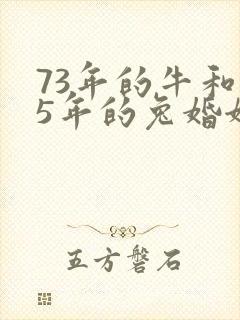 73年的牛和
5年的兔婚
五方磐石